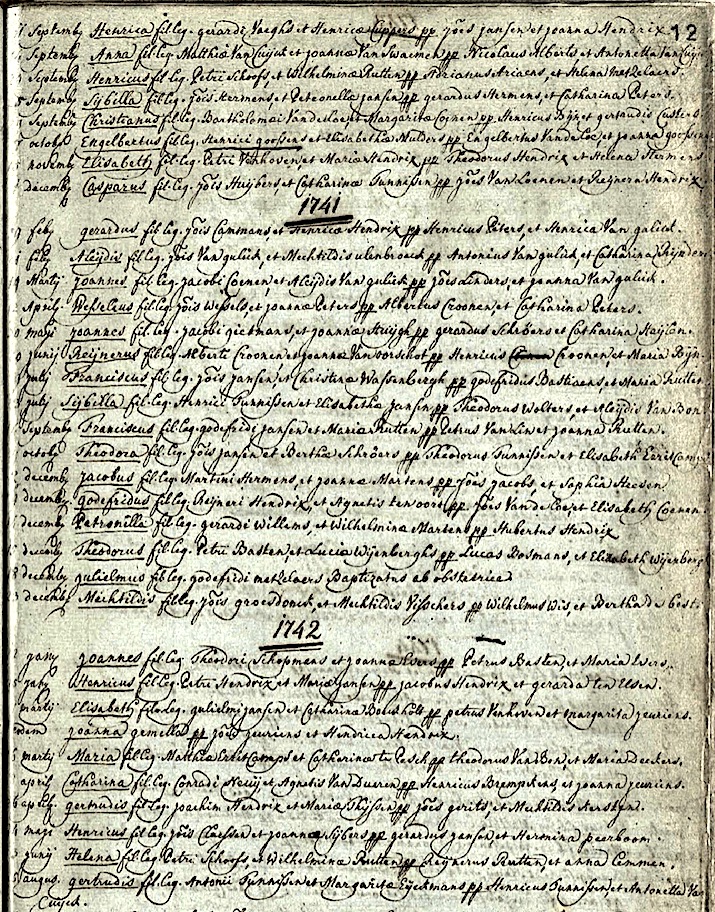 7 Septemb Henrica fil leg. gerardi Vaeghs et Henricæ Cuppers pp jois jansen et joanna Hendrix 12
Septemb Anna fil leg. Matthiæ Van Cuijck et joannæ Van Swaemen pp Nicolaus Alberts et Antonetta Van Cuijck
Septemb Henricus fil leg. Petri Schoofs, et Wilhelminæ Rutten pp Adrianus Ariaens, et Helena Metzelaers
Septemb Sijbilla fil leg. jois Hermens et Petronellæ jansen pp gerardus Hermens, et Catharina Peters.
Septemb Christianus fil leg. Bartholomæi Vande Loe et Margaritæ Coenen pp Henricus et gertrudis Custers
octob Engelbertus fil leg. Henrici goossens et Elisabethæ Mulders pp Engelbertus Vande Loe, et joanna goossens
novemb Elisabeth fil leg. Petri Venhoven et Mariæ Hendrix pp Theodorus Hendrix et Helena Hermens
decemb Casparus fil leg. jois Huijbers et Catharinæ Tunnissen pp jois Van Loenen et Reijnera Hendrix
1741
feb gerardus fil leg. jois Cammans, et Henricæ Hendrix pp Henricus Peters, et Henrica Van gulick.
feb Aleijdis fil leg. jois Van gulick, et Mechtildis ulenbroeck pp Antonius Van gulick et Catharina Reijnders
Martij joannes fil leg. jacobi Coenen et Aleijdis Van gulick pp jois Lenders, et joanna Van gulick.
April Wesselus fil leg. jois Wessels, et joannæ Peters pp Albertus Croonen, et Catharina Peters.
maij joannes fil. leg. jacobi gietmans, et joannæ pp gerardus Schebers et Catharina Heijlen.
0 junij Reijnerus fil leg. Alberti Croonen et joannæ Van oorschot pp Henricus Croonen, et Maria
julij Franciscus fil leg. jois jansen, et Christinæ Wassenbergh pp godefridus Bastiaens, et Maria Rutten
julij Sijbilla fil leg. Henrici Tunnissen et Elisabethæ jansen pp Theodorus Wolters, et Aleijdis Van Bon
Septemb Franciscus fil leg. godefridi jansen et Mariæ Rutten pp Petrus Van Lin et joanna Rutten.
octob Theodora fil leg. jois jansen et Berthæ Schroers pp Theodorus Tunnissen et Elisabeth
decemb jacobus fil leg. Martini Hermens, et joannæ Martens pp jois jacobs, et Sophia Heesen
decemb godefridus fil leg. Reijneri Hendrix, et Agnetis ten voorn pp jois Vande Loe, et Elisabeth Coenen
decemb Petronilla fil leg. gerardi Willems, et Wilhelminæ Martens pp Hubertus Hendrix
decemb Theodorus fil leg. Petri Basten, et Lucia Wijenberghs pp Lucas Bosmans, et Elisabeth Wijenbergs
8 decemb gulielmus fil leg. godefridi metzelaers Baptizatus ab obstetrice
decemb Mechtildis fil leg. jois groesdonck, et Mechtildis Visschers pp Wilhelmus Wis, et Bertha de bost.
1742
jany joannes fil leg. Theodori Schopmans et joannæ Evers pp Petrus Basten, et Maria Evers.
jany Henricus fil leg. Petri Hendrix et Mariæ jansen pp jacobus Hendrix et gerarda ten Elsen.
martij Elisabeth fil leg. gulielmi jansen et Catharinæ pp petrus Venhoven et margarita jeuriens.
eodem joanna gemella pp jois jeuriens et Hendrica Hendrix.
martij Maria fil leg. Matthiæ et Catharinæ te Pesch pp theodorus Van Bon, et Maria deckers.
april Catharina fil leg. Conradi et Agnetis Van Dueren pp Henricus Brempkens, et joanna jeuriens.
6 april gertrudis fil leg. joachim Hendrix et Mariæ Thijssen pp jois gerits, et Mechtildis Kersten.
maij Henricus fil leg. jois Claessen et joannæ Sijbers pp gerardus jansen et Hermina peerboom.
junij Helena fil leg. Petri Schoofs, et Wilhelminæ Rutten pp Reijnerus Rutten, et anna Lemmen.
augus. gertrudis fil leg. Antonii Tunnissen, et Margaritæ Eijckmans pp Henricus Tunnissen, et Antonetta Van
Cuijck.